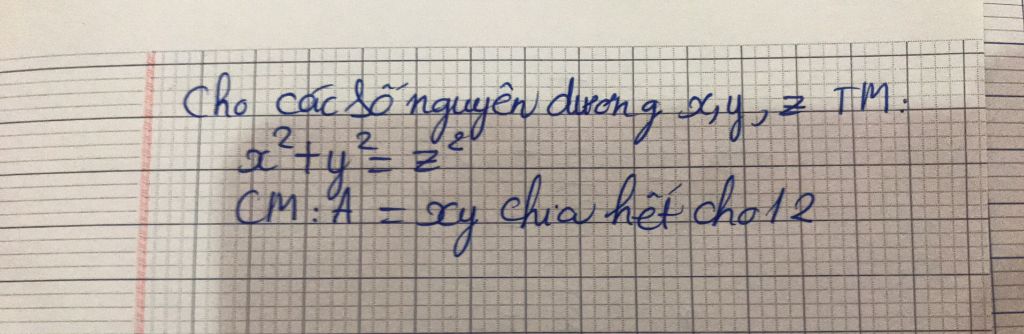 Cho các số nguyên dương x,y, z TM:
x²+y²= z²
CM: A = xy chia hết cho 12